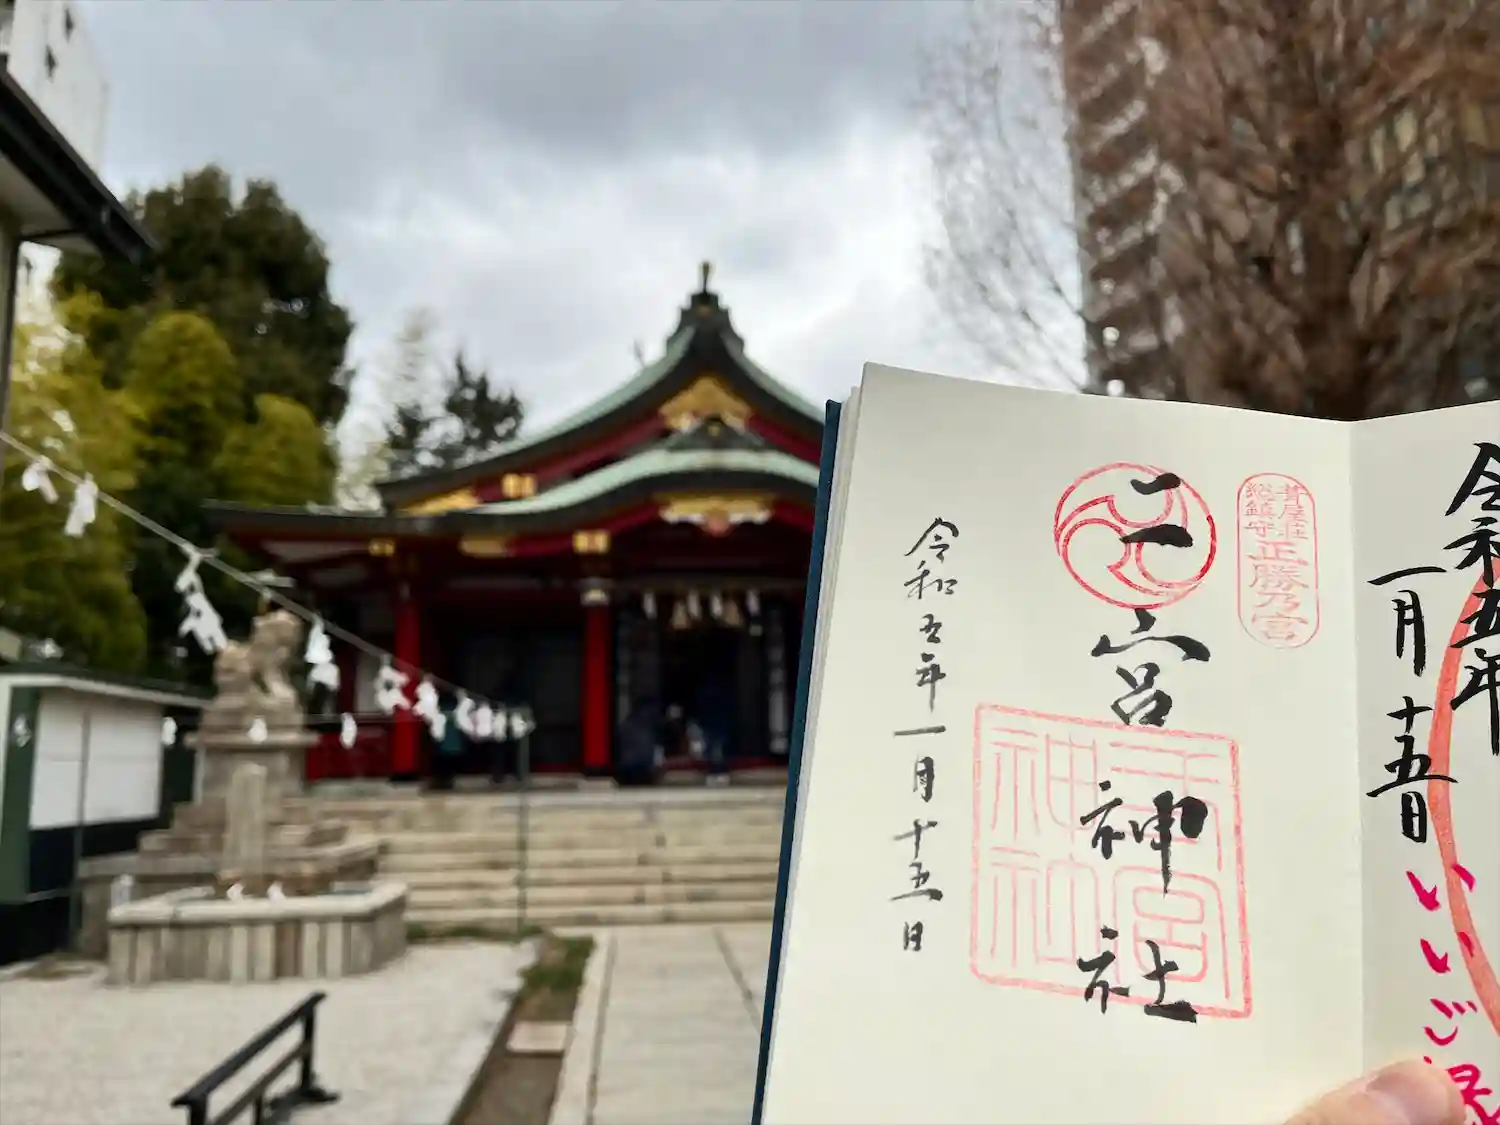 令和五年
一月十五日
いいご縁
葺屋荘
総鎮守
正勝乃宮
二宮神社
二宮
神社
令和五年一月十五日